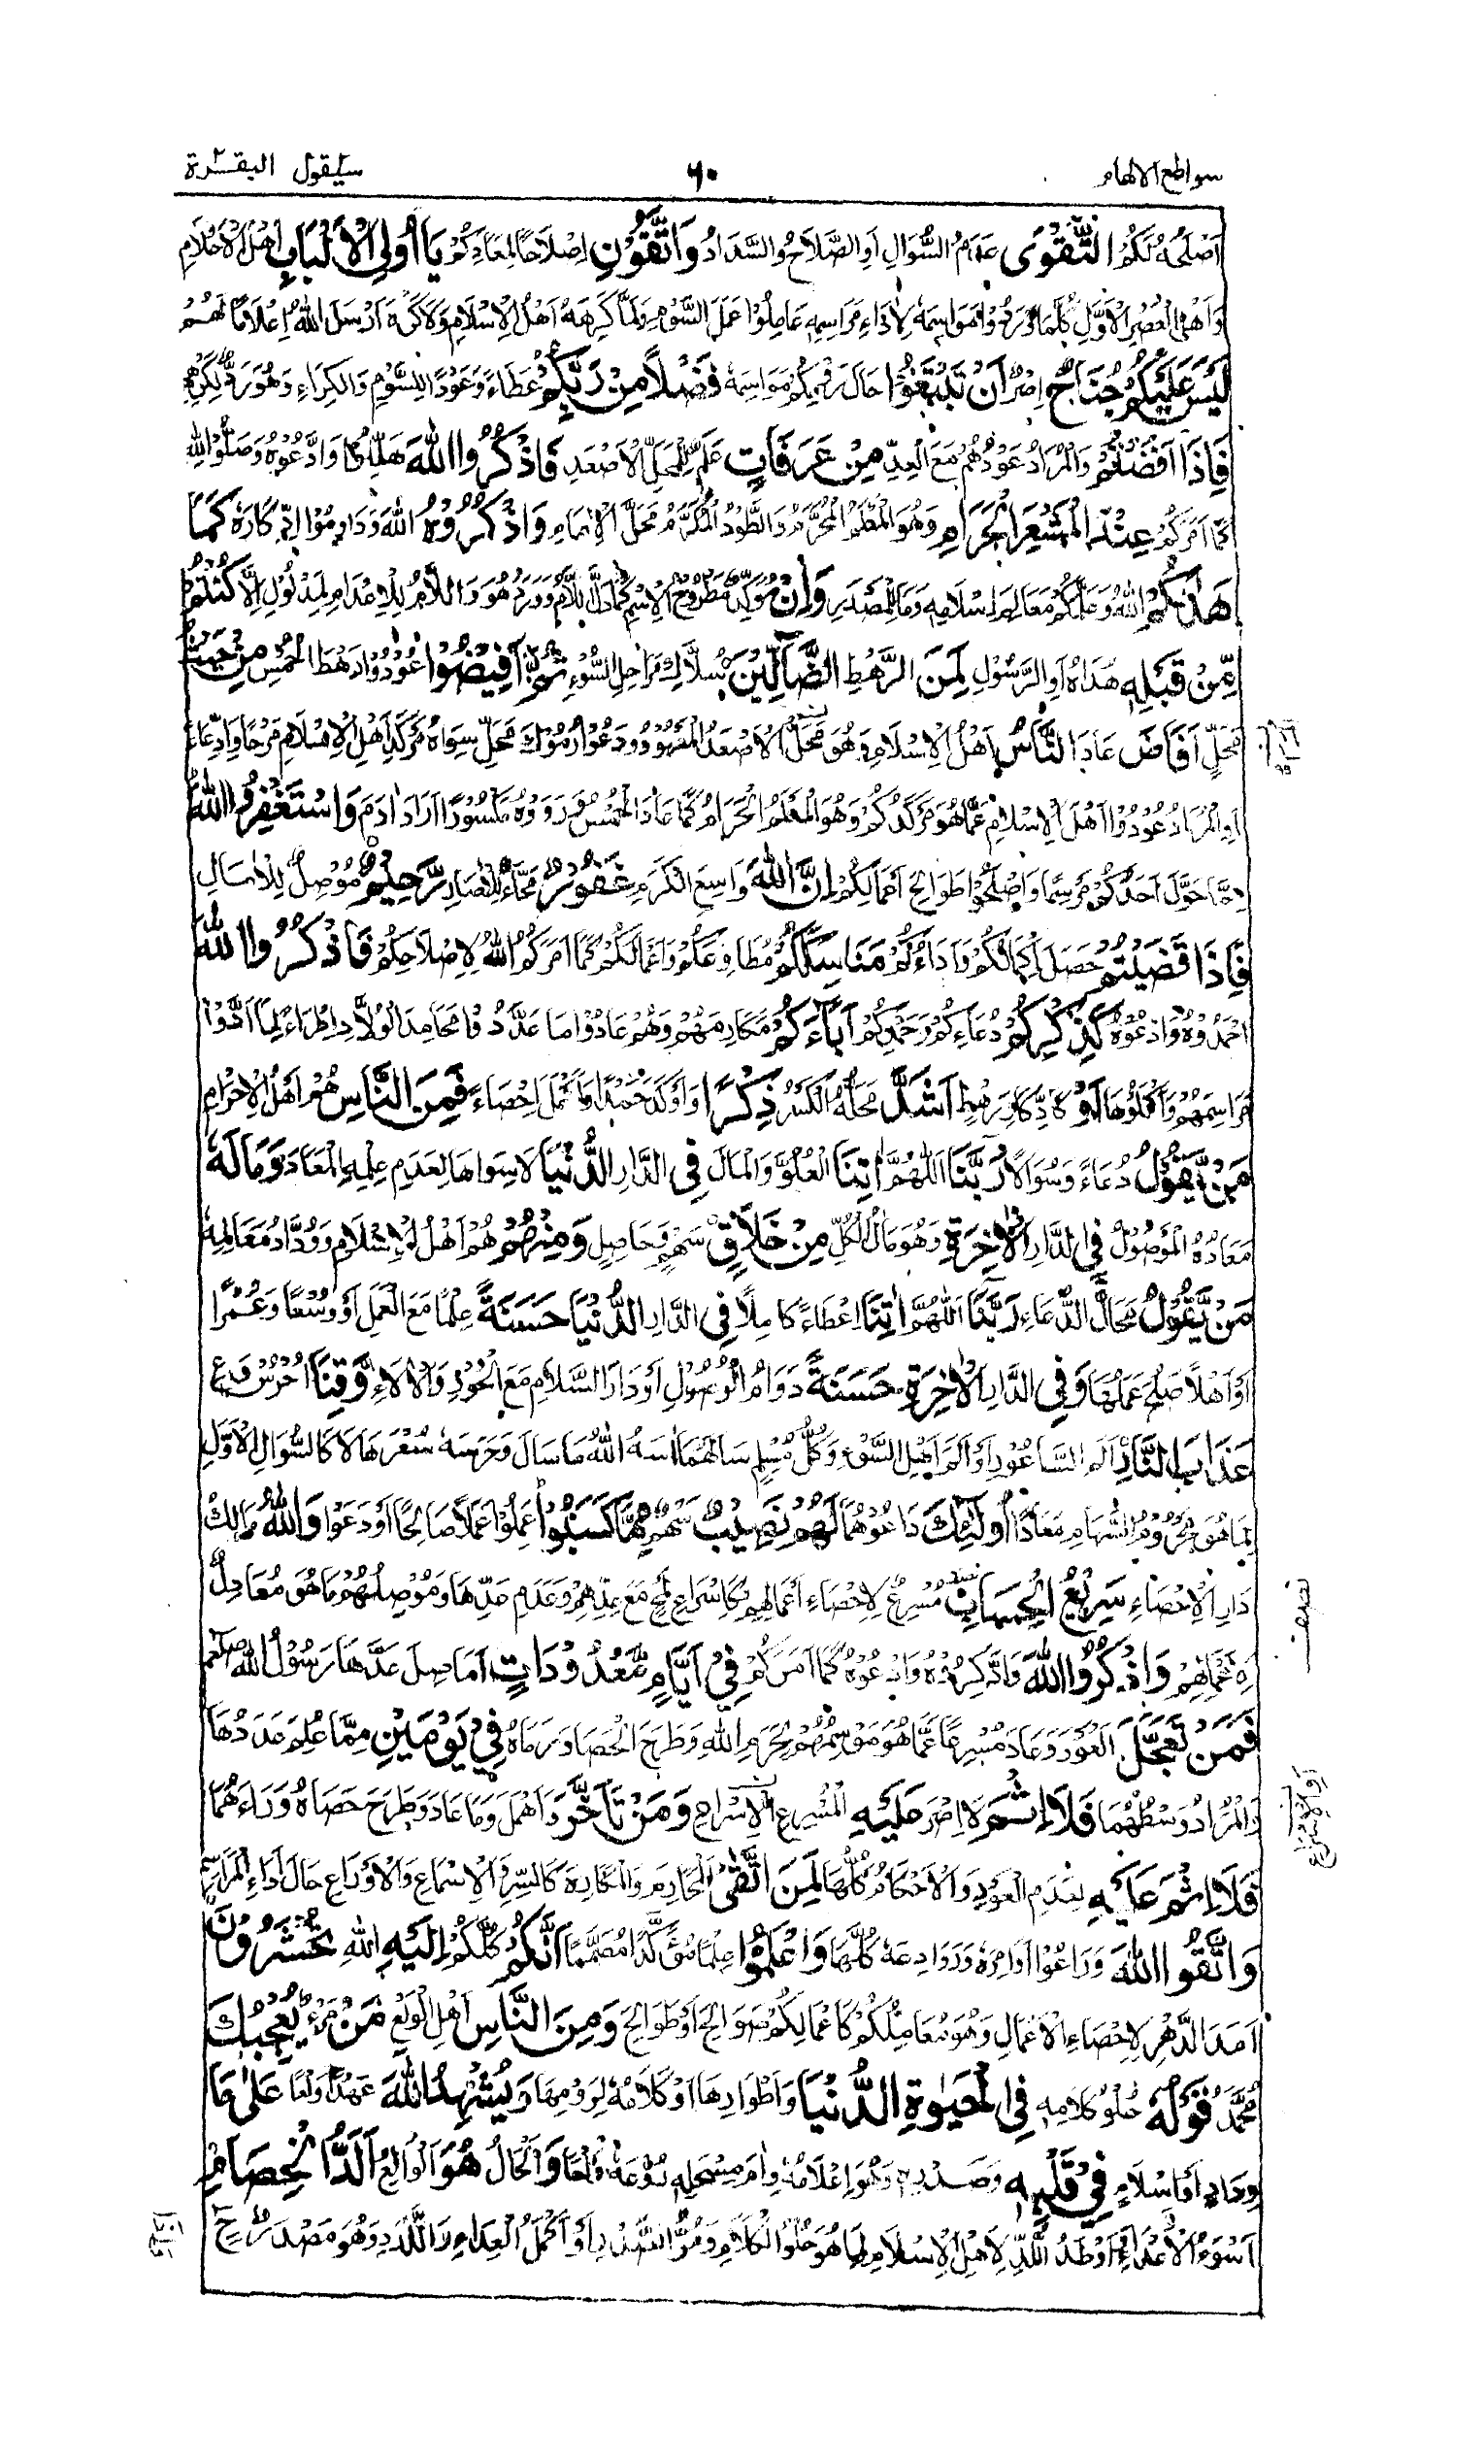 سواطع الالهام ٦٠ سيقول البقرة
اَصْلَحُهُ لَكُمُ التَّقْوٰى عَدَمُ السُّوَالِ اَوِ الصَّلَاحُ وَالسَّدَادُ وَاتَّقُوْنِ اِصْلَاحًا لِمَعَادِكُمْ يَا اُولِي الْاَلْبَابِ اَهْلَ الْاَحْلَامِ
وَاَهْلُ الْعَصْرِ الْاَوَّلِ كُلَّمَا وَرَدُوْا مَوَاسِمَهُ لِاَدَاءِ مَرَاسِمِهِ عَامِلُوْا عَمَلَ السَّوْمِ وَلَمَّا كَرِهَهُ اَهْلُ الْاِسْلَامِ وَلَاكُرْهَ اَرْسَلَ اللهُ اِعْلَامًا لَهُمْ
لَيْسَ عَلَيْكُمْ جُنَاحٌ اِصْرٌ اَنْ تَبْتَغُوْا حَالَ رَوْمِكُمْ مَوَاسِمَهُ فَضْلًا مِنْ رَبِّكُمْ عَطَاءً وَعَوْدًا لِلسَّوْمِ وَالْكِرَاءِ وَهُوَ رَدٌّ لِكُرْهِهِمْ
فَاِذَا اَفَضْتُمْ وَالْمُرَادُ عَوْدُهُمْ مَعَ الْعِدِّ مِنْ عَرَفَاتٍ عَلَمٌ لِلْمَحَلِّ الْاَصْعَدِ فَاذْكُرُوا اللهَ هَلِّلُوْا وَادْعُوْهُ وَصَلُّوْا لِلهِ
كَمَا اَمَرَكُمْ عِنْدَ الْمَشْعَرِ الْحَرَامِ وَهُوَ الْمَعْلَمُ الْمُحَرَّمُ وَالطَّوْدُ الْمُكَرَّمُ مَحَلُّ الْاِمَامِ وَاذْكُرُوْهُ اللهَ وَدَاوِمُوْا ادِّكَارَهُ كَمَا
هَدٰىكُمْ اللهُ وَعَلَّمَكُمْ مَعَالِمَ اِسْلَامِهِ وَمَا لِلْمَصْدَرِ وَاِنْ مُؤَكِّدٌ مَطْرُوْحُ الْاِسْمِ كَمَا دَلَّ اللَّامُ وَوَرَدَ هُوَ وَاللَّامُ لِلْاِعْدَامِ لِمَدْلُوْلِ اِلَّا كُنْتُمْ
مِّنْ قَبْلِهِ هُدَاهُ اَوِ الرَّسُوْلِ لَمِنَ الرَّهْطِ الضَّآلِّيْنَ سُلَّاكِ مَرَاحِلِ السُّوْءِ ثُمَّ اَفِيْضُوْا عُوْدُوْا رَهْطَ الْحُمْسِ مِنْ حَيْثُ
مَحَلٍّ اَفَاضَ عَادَ النَّاسُ اَهْلُ الْاِسْلَامِ وَهُوَ مَحَلُّ الْاَصْعَدُ الْمَعْهُوْدُ وَدَعُوْا رَمُوْكَ مَحَلٍّ سِوَاهُ مَرْكَدِ اَهْلِ الْاِسْلَامِ مَرَحًا وَادِّعَاءً
اَوِ الْمُرَادُ عُوْدُوْا اَهْلَ الْاِسْلَامِ عَمَّا هُوَ مَرْكَدُكُمْ وَهُوَ الْمَعْلَمُ الْحَرَامُ كَمَا عَادَ الْحُمْسُ وَرَوَوْهُ مَكْسُوْرًا اَرَادَ اٰدَمَ وَاسْتَغْفِرُوا اللهَ
مِمَّا حَوَّلَ اَحَدُكُمْ مَرْسِمًا وَاصْلِحُوْا طَوَالِحَ اَعْمَالِكُمْ اِنَّ اللهَ وَاسِعُ الْكَرَمِ غَفُوْرٌ مَحَّاءٌ لِلْاٰصَارِ رَّحِيْمٌ مُوْصِلٌ لِلْاٰمَالِ
فَاِذَا قَضَيْتُمْ حَصَلَ اِكْمَالُكُمْ وَاَدَاءُكُمْ مَنَاسِكَكُمْ مُطَاوِعَكُمْ وَاَعْمَالَكُمْ كَمَا اَمَرَكُمُ اللهُ لِاِصْلَاحِكُمْ فَاذْكُرُوا اللهَ
احْمَدُوْهُ وَادْعُوْهُ كَذِكْرِكُمْ دُعَاءِكُمْ وَحَمْدِكُمْ اٰبَاءَكُمْ مَكَارِمَهُمْ وَهُمْ عَادُوْا مَا عَدَّدُوْا مَحَامِدَ الْوُلَّادِ اِطْرَاءً لَمَّا اَدَّوْا
مَرَاسِمَهُمْ وَاَكْمَلُوْهَا اَوْ كَادِّكَارِ رَهْطٍ اَشَدَّ مَحَلُّهُ الْكَسْرُ ذِكْرًا وَاَوْكَدَ حَمْدًا وَاَكْمَلَ اِحْصَاءً فَمِنَ النَّاسِ هُمْ اَهْلُ الْاِحْرَامِ
مَنْ يَّقُوْلُ دُعَاءً وَسُوَالًا رَبَّنَا اَللّٰهُمَّ اٰتِنَا الْعُلُوَّ وَالْمَالَ فِى الدَّارِ الدُّنْيَا لَا سِوَاهَا لِعَدَمِ عِلْمِهِ الْمَعَادَ وَمَا لَهُ
مَعَادُهُ الْمَوْصُوْلُ فِى الدَّارِ الْاٰخِرَةِ وَهُوَ مَاٰلُ الْكُلِّ مِنْ خَلَاقٍ سَهْمٍ وَحَاصِلٍ وَمِنْهُمْ هُمْ اَهْلُ الْاِسْلَامِ وَوُدَّادُ مَعَالِمِهِ
مَنْ يَّقُوْلُ مَحَالَّ الدُّعَاءِ رَبَّنَا اَللّٰهُمَّ اٰتِنَا اِعْطَاءً كَامِلًا فِى الدَّارِ الدُّنْيَا حَسَنَةً عِلْمًا مَعَ الْعَمَلِ اَوْ وُسْعًا وَعُمْرًا
اَوْ اَهْلًا صَلُحَ عَمَلُهَا وَفِى الدَّارِ الْاٰخِرَةِ حَسَنَةً دَوَامَ الْوُصُوْلِ اَوْ دَارَ السَّلَامِ مَعَ الْحُوْرِ وَالْاٰلَاءِ وَّقِنَا احْرُسْ وَادْعُ
عَذَابَ النَّارِ اَلَمَ السَّاعُوْرِ اَوْ اَلَمَ اَهْلِ السُّوْءِ وَكُلُّ مُسْلِمٍ سَاَلَهُمَا اٰسَهُ اللهُ مَا سَاَلَ وَحَرَسَهُ سُعْرَهَا لَا كَالسُّوَالِ الْاَوَّلِ
لِمَا هُوَ مَحْرُوْمُ السِّهَامِ مَعَادًا اُولٰٓئِكَ دَاعُوْهُمَا لَهُمْ نَصِيْبٌ سَهْمٌ مِّمَّا كَسَبُوْا عَمِلُوْا عَمَلًا صَالِحًا اَوْ دَعَوْا وَاللهُ مَالِكُ
دَارِ الْاِحْصَاءِ سَرِيْعُ الْحِسَابِ مُسْرِعٌ لِاِحْصَاءِ اَعْمَالِهِمْ كَاِسْرَاعِ لَمْحٍ مَعَ عَدِّهِمْ وَعَدَمِ حَدِّهَا وَمُوْصِلُهُمْ مَا هُوَ مُعَادِلٌ
لِاَعْمَالِهِمْ وَاذْكُرُوا اللهَ وَادَّكِرُوْهُ وَادْعُوْهُ كَمَا اَمَرَكُمْ فِيْ اَيَّامٍ مَّعْدُوْدَاتٍ اَمَاصِلَ عَدَّهَا رَسُوْلُ اللهِ صلعم
فَمَنْ تَعَجَّلَ الْعَوْدَ وَعَادَ مُسْرِعًا عَمَّا هُوَ مَوْسِمُهُمْ لِحَرَمِ اللهِ وَطَرَحَ الْحَصَا وَرَمَاهُ فِيْ يَوْمَيْنِ مِمَّا عُلِمَ عَدَدُهَا
وَالْمُرَادُ وَسْطُهُمَا فَلَا اِثْمَ لَا اِصْرَ عَلَيْهِ الْمُسْرِعِ الْاِسْرَاعِ وَمَنْ تَاَخَّرَ وَاَهْمَلَ وَمَا عَادَ وَطَرَحَ حَصَاهُ وَرَاءَهُمَا
فَلَا اِثْمَ عَلَيْهِ لِعَدَمِ الْعَوْدِ وَالْاَحْكَامُ كُلُّهَا لِمَنِ اتَّقٰى الْمَحَارِمَ وَالْمَكَارِهَ كَالسِّرِّ وَالْاِسْمَاعِ وَالْاَوْرَاعِ حَالَ اَدَاءِ الْمَرَاسِمِ
وَاتَّقُوا اللهَ وَرَاعُوْا اَوَامِرَهُ وَرَوَادِعَهُ كُلَّهَا وَاعْلَمُوْا عِلْمًا مُؤَكَّدًا مُصَمَّمًا اَنَّكُمْ كُلَّكُمْ اِلَيْهِ اللهِ تُحْشَرُوْنَ
اَمَدَ الدَّهْرِ لِاِحْصَاءِ الْاَعْمَالِ وَهُوَ مُعَامِلُكُمْ كَاَعْمَالِكُمْ صَوَالِحَ اَوْ طَوَالِحَ وَمِنَ النَّاسِ اَهْلِ الْوَلَعِ مَنْ مَرْءٌ يُعْجِبُكَ
مُحَمَّدُ قَوْلُهُ حُلْوُ كَلَامِهِ فِى الْحَيٰوةِ الدُّنْيَا وَاَطْوَارِهَا اَوْ كَلَامُهُ لِرَوْمِهَا وَيُشْهِدُ اللهَ عَهْدًا وَلَعًا عَلٰى مَا
وِدَادٍ اَوْ اِسْلَامٍ فِيْ قَلْبِهِ وَصَدْرِهِ وَهُوَ اِعْلَامُهُ وِامَ مِسْحَلِهِ رُوْعَهُ وَلَعًا وَالْحَالُ هُوَ الْوَالِعُ اَلَدُّ الْخِصَامِ
اَسْوَءُ الْاَعْدَاءِ اَوْطَدُ اللَّدِّ لِاَهْلِ الْاِسْلَامِ لِمَا هُوَ حُلْوُ الْكَلَامِ وَمُرُّ الصَّدْرِ اَوْ اَكْمَلُ الْعِدَاءِ وَاللَّدَدِ وَهُوَ مَصْدَرٌ ح
نصف